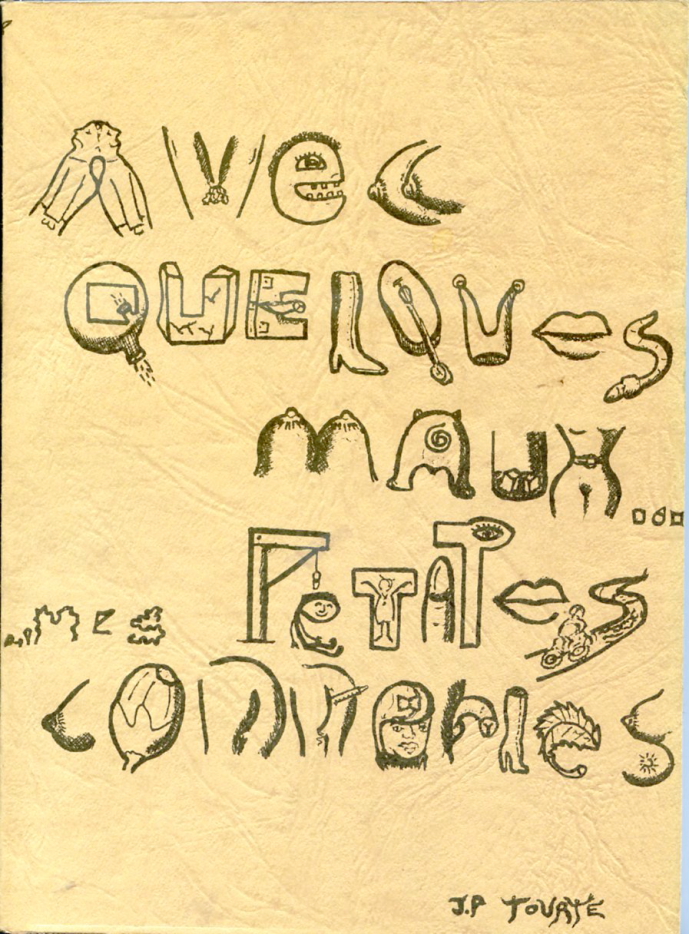 AVeC
QUELQUeS
MAUX...
...MES PeTITeS
CONNeRIeS
J.P TOURTE